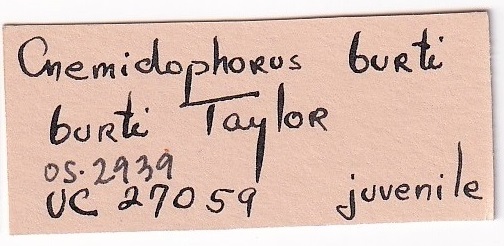 Cnemidophorus burti
burti Taylor
OS. 2939
UC 27059 juvenile